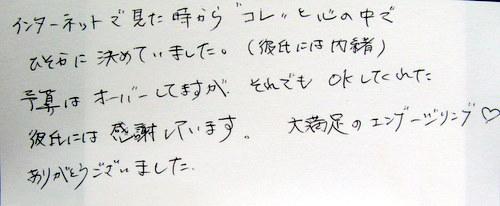 インターネットで見た時から"コレ"と心の中で
ひそかに決めていました。(彼氏には内緒)
予算はオーバーしてますが、それでもOKしてくれた
彼氏には感謝しています。 大満足のエンゲージリング♡
ありがとうございました.